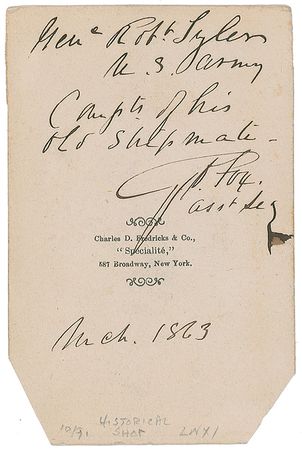 Genl Robt Tyler
U. S. Army
Compts of his
old Shipmate -
G V Fox.
asst Sec
Charles D. Fredricks & Co.,
"Specialité,"
587 Broadway, New York.
Mch. 1863
HISTORICAL
SHOP